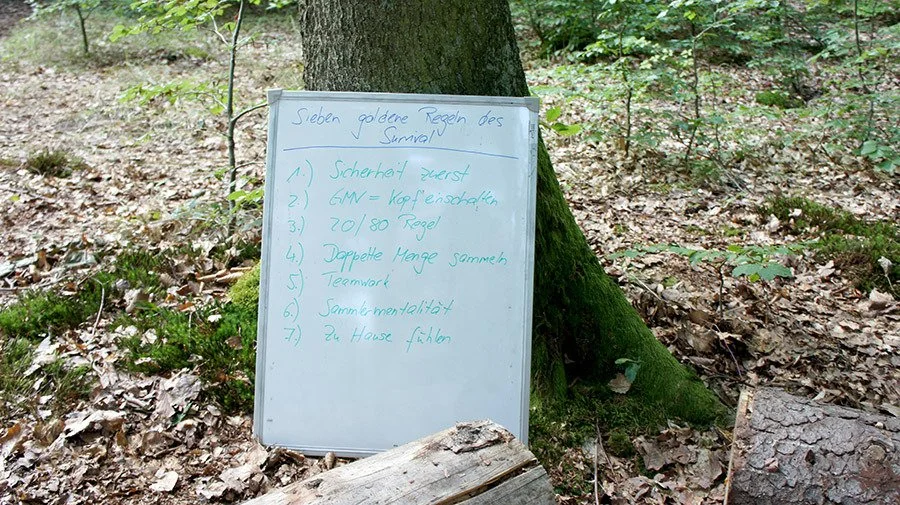 Sieben goldene Regeln des
Survival
1.) Sicherheit zuerst
2.) GMV = Kopf einschalten
3.) 20/80 Regel
4.) Doppelte Menge sammeln
5.) Teamwork
6.) Sammlermentalität
7.) Zu Hause fühlen